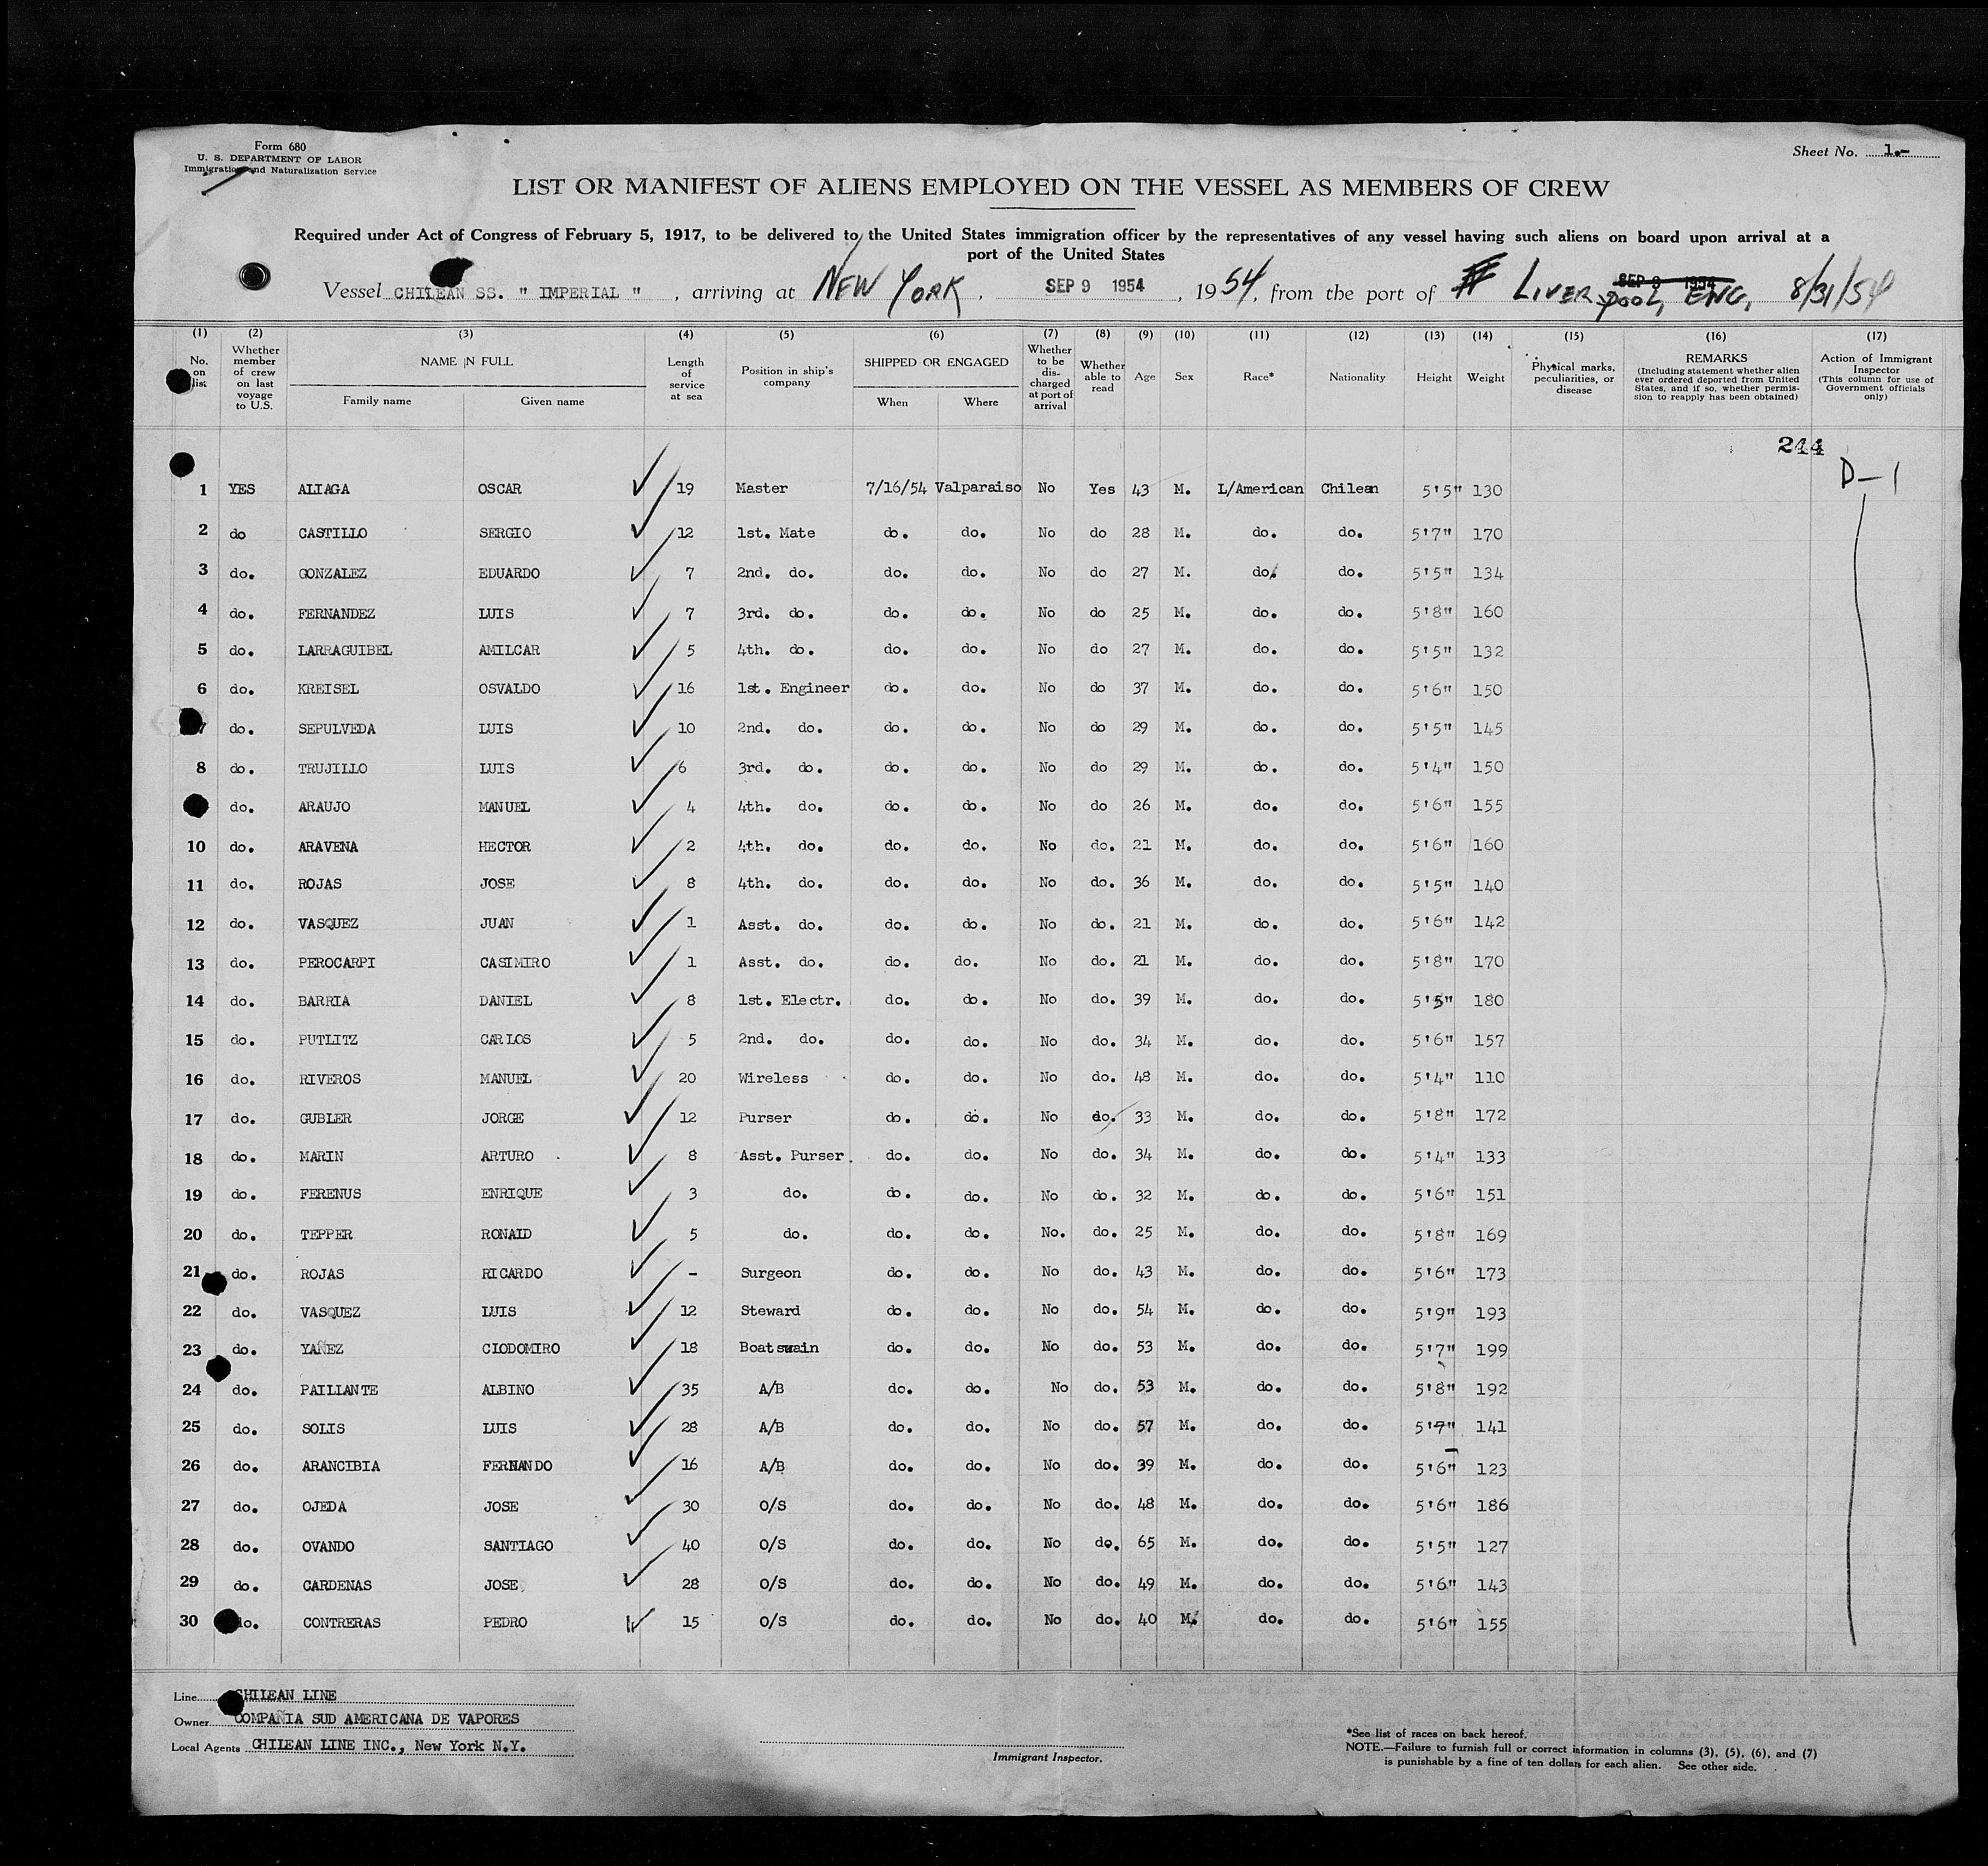 Form 680
U. S. DEPARTMENT OF LABOR
Immigration and Naturalization Service
Sheet No. 1.-
LIST OR MANIFEST OF ALIENS EMPLOYED ON THE VESSEL AS MEMBERS OF CREW
Required under Act of Congress of February 5, 1917, to be delivered to the United States immigration officer by the representatives of any vessel having such aliens on board upon arrival at a
port of the United States
Vessel CHILEAN SS. " IMPERIAL " , arriving at NEW YORK , SEP 9 1954 , 1954, from the port of LIVERPOOL, ENG. SEP 9 1954 8/31/54
(1) (2) (3) (4) (5) (6) (7) (8) (9) (10) (11) (12) (13) (14) (15) (16) (17)
No. on list
Whether member of crew on last voyage to U.S.
NAME IN FULL
Family name Given name
Length of service at sea
Position in ship's company
SHIPPED OR ENGAGED
When Where
Whether to be discharged at port of arrival
Whether able to read
Age Sex Race* Nationality Height Weight
Physical marks, peculiarities, or disease
REMARKS
(Including statement whether alien ever ordered deported from United States, and if so, whether permission to reapply has been obtained)
Action of Immigrant Inspector
(This column for use of Government officials only)
244
D-1
1 YES ALIAGA OSCAR 19 Master 7/16/54 Valparaiso No Yes 43 M. L/American Chilean 5'5" 130
2 do CASTILLO SERGIO 12 1st. Mate do. do. No do 28 M. do. do. 5'7" 170
3 do. GONZALEZ EDUARDO 7 2nd. do. do. do. No do 27 M. do. do. 5'5" 134
4 do. FERNANDEZ LUIS 7 3rd. do. do. do. No do 25 M. do. do. 5'8" 160
5 do. LARRAGUIBEL AMILCAR 5 4th. do. do. do. No do 27 M. do. do. 5'5" 132
6 do. KREISEL OSVALDO 16 1st. Engineer do. do. No do 37 M. do. do. 5'6" 150
7 do. SEPULVEDA LUIS 10 2nd. do. do. do. No do 29 M. do. do. 5'5" 145
8 do. TRUJILLO LUIS 6 3rd. do. do. do. No do 29 M. do. do. 5'4" 150
do. ARAUJO MANUEL 4 4th. do. do. do. No do 26 M. do. do. 5'6" 155
10 do. ARAVENA HECTOR 2 4th. do. do. do. No do. 21 M. do. do. 5'6" 160
11 do. ROJAS JOSE 8 4th. do. do. do. No do. 36 M. do. do. 5'5" 140
12 do. VASQUEZ JUAN 1 Asst. do. do. do. No do. 21 M. do. do. 5'6" 142
13 do. PEROCARPI CASIMIRO 1 Asst. do. do. do. No do. 21 M. do. do. 5'8" 170
14 do. BARRIA DANIEL 8 1st. Electr. do. do. No do. 39 M. do. do. 5'5" 180
15 do. PUTLITZ CARLOS 5 2nd. do. do. do. No do. 34 M. do. do. 5'6" 157
16 do. RIVEROS MANUEL 20 Wireless do. do. No do. 48 M. do. do. 5'4" 110
17 do. GUBLER JORGE 12 Purser do. do. No do. 33 M. do. do. 5'8" 172
18 do. MARIN ARTURO 8 Asst. Purser. do. do. No do. 34 M. do. do. 5'4" 133
19 do. FERENUS ENRIQUE 3 do. do. do. No do. 32 M. do. do. 5'6" 151
20 do. TEPPER RONALD 5 do. do. do. No. do. 25 M. do. do. 5'8" 169
21 do. ROJAS RICARDO - Surgeon do. do. No do. 43 M. do. do. 5'6" 173
22 do. VASQUEZ LUIS 12 Steward do. do. No do. 54 M. do. do. 5'9" 193
23 do. YAÑEZ CLODOMIRO 18 Boatswain do. do. No do. 53 M. do. do. 5'7" 199
24 do. PAILLANTE ALBINO 35 A/B do. do. No do. 53 M. do. do. 5'8" 192
25 do. SOLIS LUIS 28 A/B do. do. No do. 57 M. do. do. 5'7" 141
26 do. ARANCIBIA FERNANDO 16 A/B do. do. No do. 39 M. do. do. 5'6" 123
27 do. OJEDA JOSE 30 O/S do. do. No do. 48 M. do. do. 5'6" 186
28 do. OVANDO SANTIAGO 40 O/S do. do. No do. 65 M. do. do. 5'5" 127
29 do. CARDENAS JOSE 28 O/S do. do. No do. 49 M. do. do. 5'6" 143
30 do. CONTRERAS PEDRO 15 O/S do. do. No do. 40 M. do. do. 5'6" 155
Line CHILEAN LINE
Owner COMPAÑIA SUD AMERICANA DE VAPORES
Local Agents CHILEAN LINE INC., New York N.Y.
Immigrant Inspector.
*See list of races on back hereof.
NOTE.—Failure to furnish full or correct information in columns (3), (5), (6), and (7)
is punishable by a fine of ten dollars for each alien. See other side.